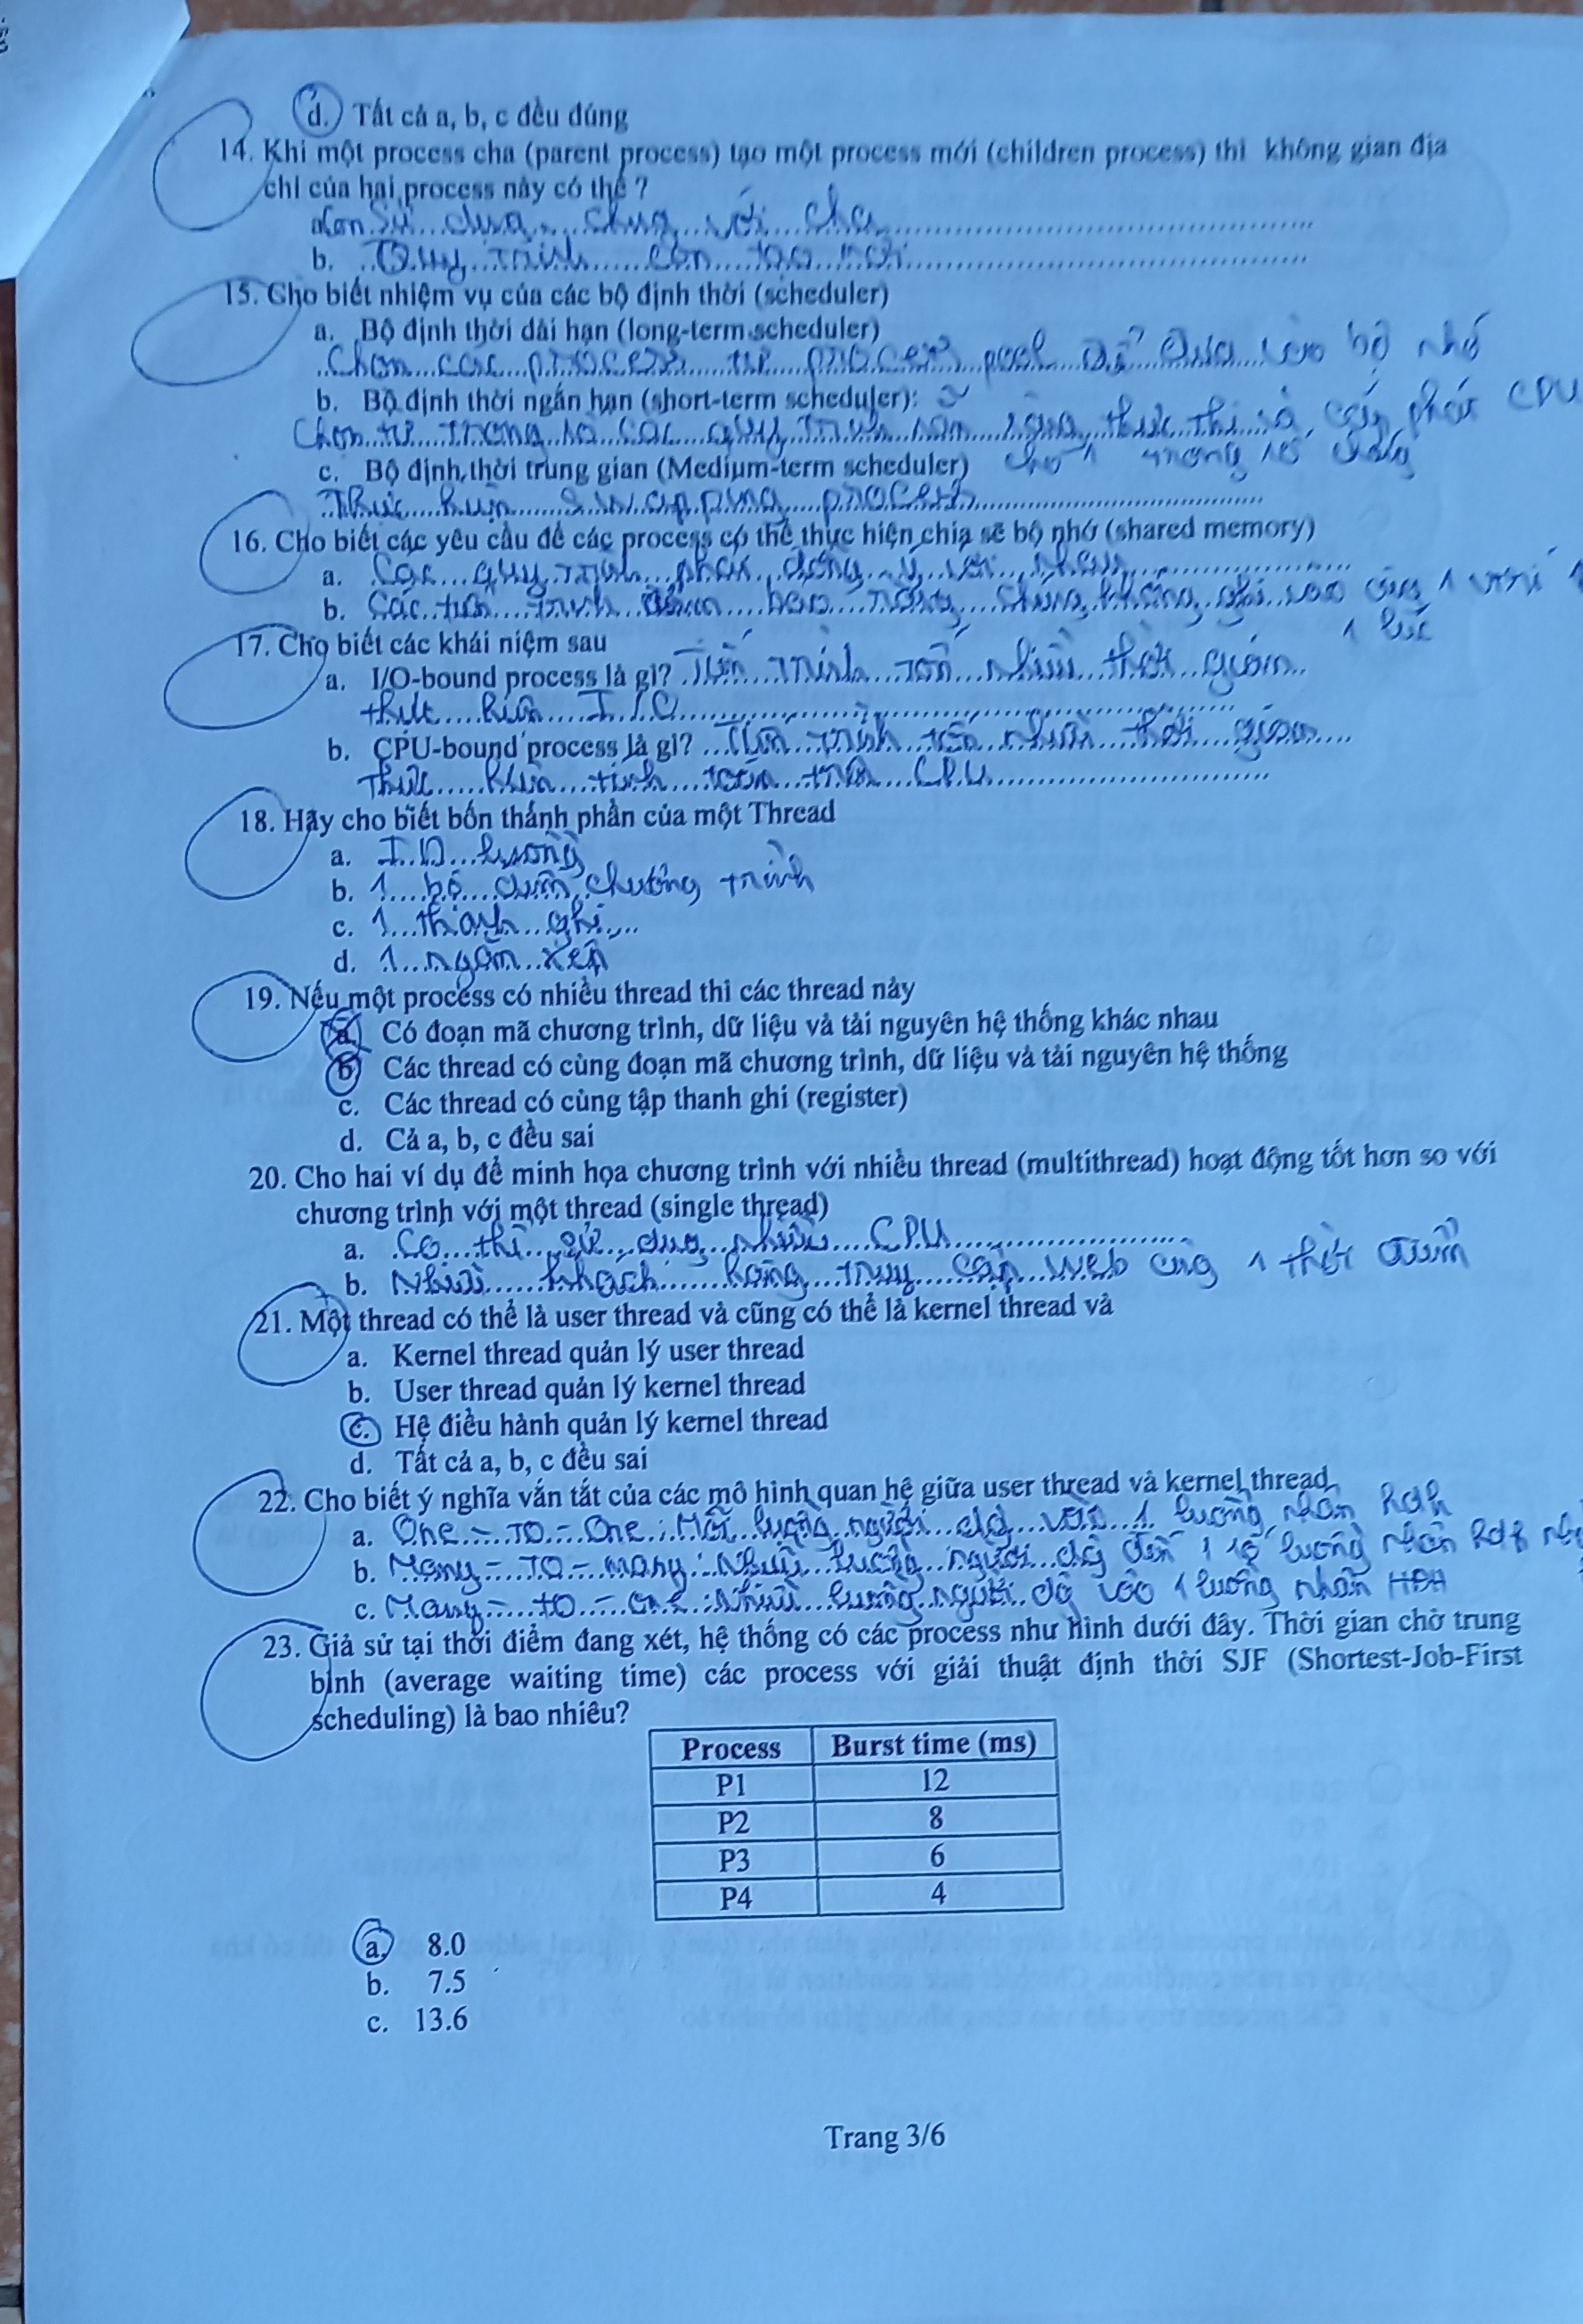 d. Tất cả a, b, c đều đúng
14. Khi một process cha (parent process) tạo một process mới (children process) thì không gian địa
chỉ của hai process này có thể ?
Con sử dụng chung với cha
b. Quy trình con tạo mới
15. Cho biết nhiệm vụ của các bộ định thời (scheduler)
a. Bộ định thời dài hạn (long-term scheduler)
Chọn các process từ process pool để đưa vào bộ nhớ
b. Bộ định thời ngắn hạn (short-term scheduler):
Chọn từ trong số các quy trình sẵn sàng thực thi và cấp phát CPU
cho 1 trong số chúng
c. Bộ định thời trung gian (Medium-term scheduler)
Thực hiện swapping process
16. Cho biết các yêu cầu để các process có thể thực hiện chia sẽ bộ nhớ (shared memory)
a. Các quy trình phải đồng ý với nhau
b. Các tiến trình đảm bảo rằng chúng không ghi vào cùng 1 vị trí
1 lúc
17. Cho biết các khái niệm sau
a. I/O-bound process là gì? Tiến trình tốn nhiều thời gian
thực hiện I/O
b. CPU-bound process là gì? Tiến trình tốn nhiều thời gian
thực hiện tính toán trên CPU
18. Hãy cho biết bốn thành phần của một Thread
a. ID luồng
b. 1 bộ đếm chương trình
c. 1 thanh ghi
d. 1 ngăn xếp
19. Nếu một process có nhiều thread thì các thread này
a. Có đoạn mã chương trình, dữ liệu và tài nguyên hệ thống khác nhau
b. Các thread có cùng đoạn mã chương trình, dữ liệu và tài nguyên hệ thống
c. Các thread có cùng tập thanh ghi (register)
d. Cả a, b, c đều sai
20. Cho hai ví dụ để minh họa chương trình với nhiều thread (multithread) hoạt động tốt hơn so với
chương trình với một thread (single thread)
a. Có thể sử dụng nhiều CPU
b. Nhiều khách hàng truy cập web cùng 1 thời điểm
21. Một thread có thể là user thread và cũng có thể là kernel thread và
a. Kernel thread quản lý user thread
b. User thread quản lý kernel thread
c. Hệ điều hành quản lý kernel thread
d. Tất cả a, b, c đều sai
22. Cho biết ý nghĩa vắn tắt của các mô hình quan hệ giữa user thread và kernel thread
a. One - TO - One : Mỗi luồng người dùng vào 1 luồng nhân hđh
b. Many - TO - many : Nhiều luồng người dùng đến 1 số luồng nhân hđh
c. Many - to - one : Nhiều luồng người dùng vào 1 luồng nhân HĐH
23. Giả sử tại thời điểm đang xét, hệ thống có các process như hình dưới đây. Thời gian chờ trung
bình (average waiting time) các process với giải thuật định thời SJF (Shortest-Job-First
scheduling) là bao nhiêu?
Process Burst time (ms)
P1 12
P2 8
P3 6
P4 4
a. 8.0
b. 7.5
c. 13.6
Trang 3/6